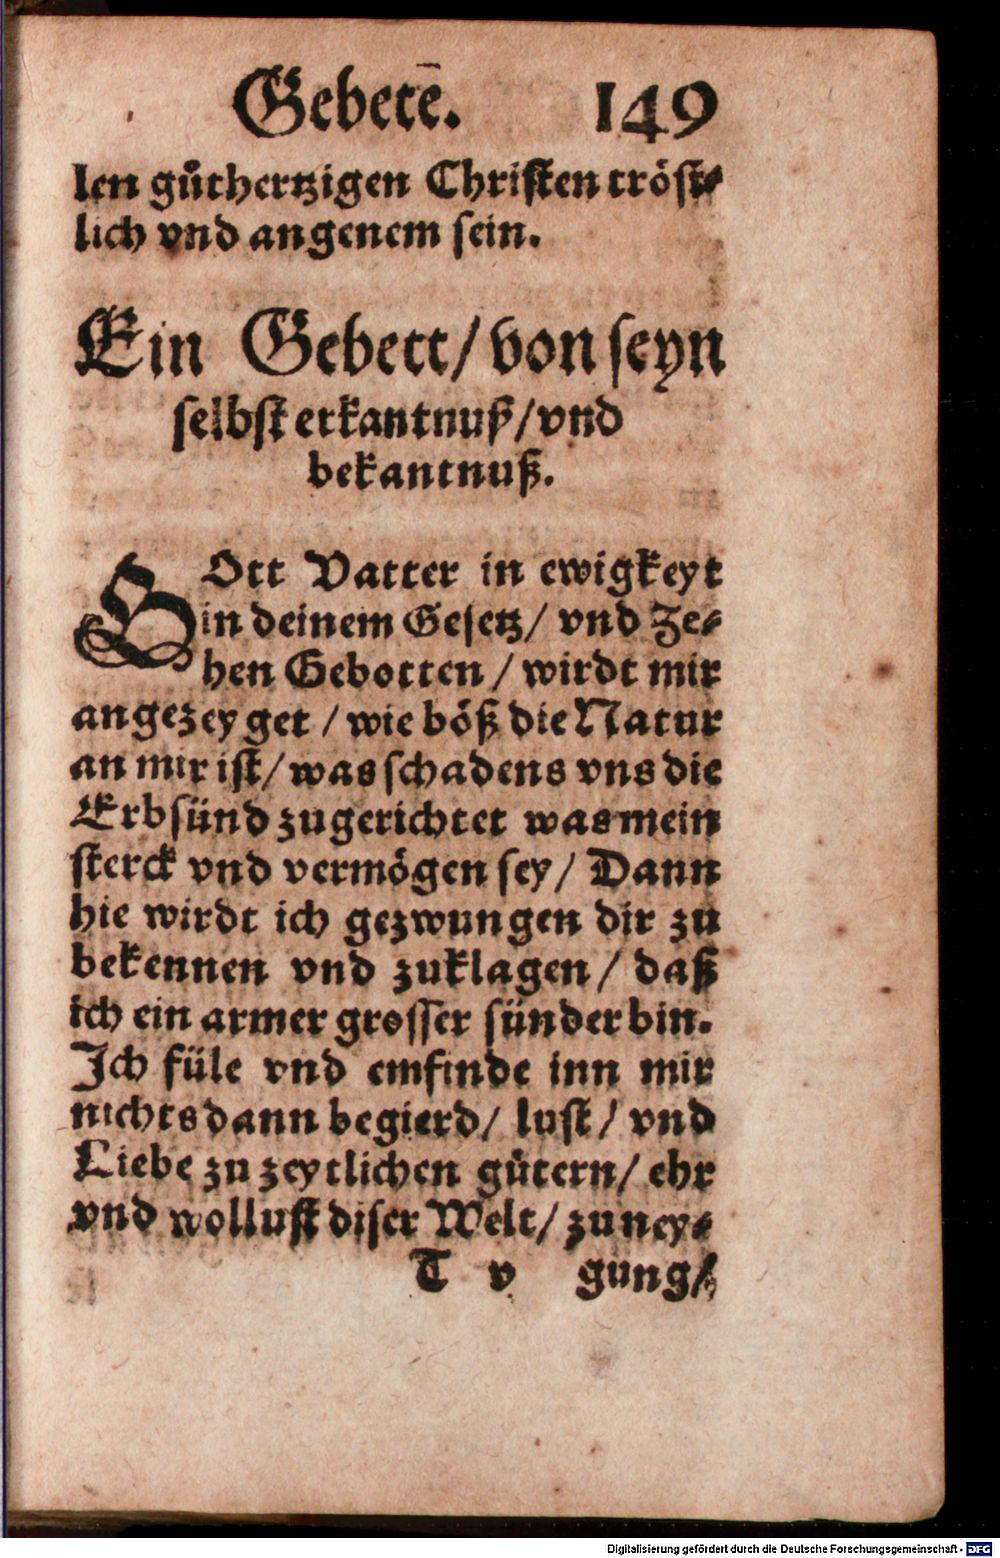 Gebetē. 149
len gůthertzigen Christen tröst⸗
lich vnd angenem sein.
Ein Gebett/ von seyn
selbst erkantnuß/ vnd
bekantnuß.
GOtt Vatter in ewigkeyt
in deinem Gesetz/ vnd Ze⸗
hen Gebotten/ wirdt mir
angezeyget/ wie böß die Natur
an mir ist/ was schadens vns die
Erbsünd zugerichtet was mein
sterck vnd vermögen sey/ Dann
hie wirdt ich gezwungen dir zu
bekennen vnd zuklagen/ daß
ich ein armer grosser sünder bin.
Ich füle vnd emfinde inn mir
nichts dann begierd/ lust/ vnd
Liebe zu zeytlichen gütern/ ehr
vnd wollust diser Welt/ zuney⸗
T v gung/
Digitalisierung gefördert durch die Deutsche Forschungsgemeinschaft - DFG